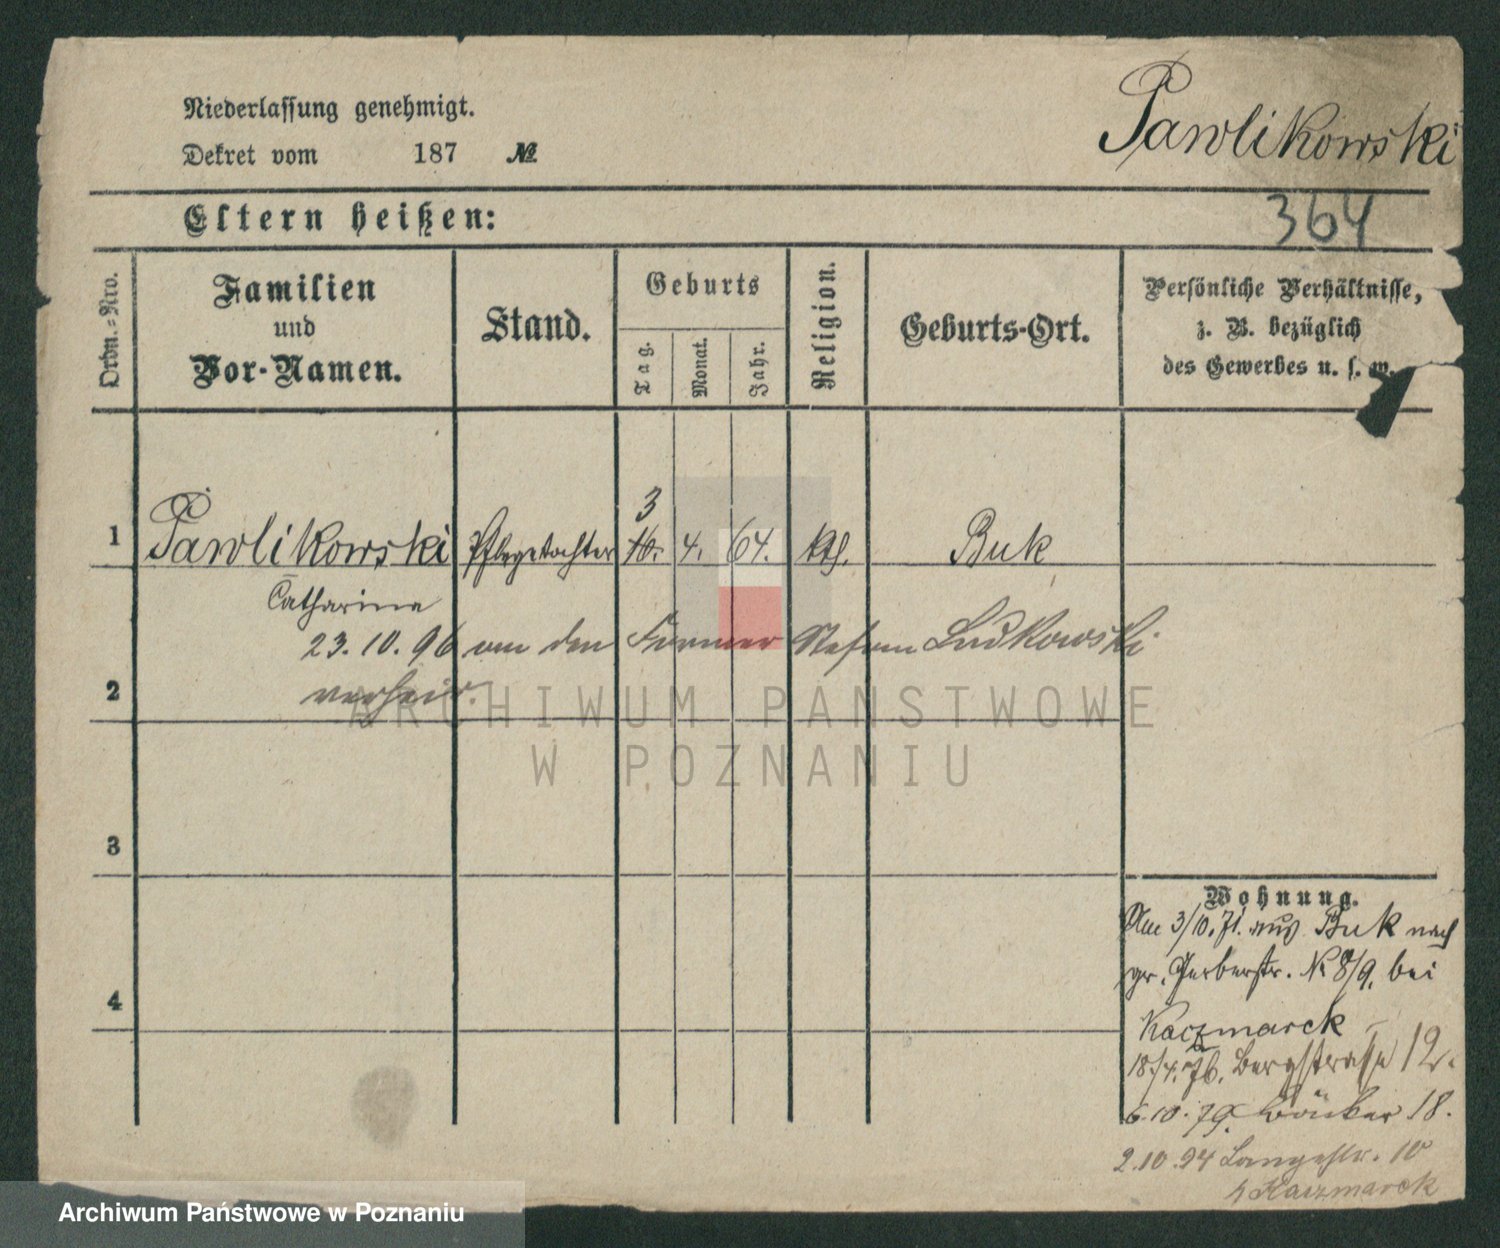 Niederlassung genehmigt.
Dekret vom 187 №
Pawlikowski
364
Eltern heißen:
Ordn.=Nro.
Familien
und
Vor-Namen.
Stand.
Geburts
Tag.
Monat.
Jahr.
Religion.
Geburts-Ort.
Persönliche Verhältnisse,
z. B. bezüglich
des Gewerbes u. s. w.
3
1 Pawlikowski Pflegetochter 4. 64. kth. Buk
Catharina
23.10.96 an den Former Stefan Ludkowski
2 verheir.
3
4
Wohnung.
Am 3/10.71. aus Buk nach
gr. Gerberstr. № 8/9. bei
Kaczmarek
18./4.76. Bergstrasse 12.
6.10.79. 18.
2.10.94 Langestr. 10
Kaczmarek
ARCHIWUM PAŃSTWOWE
W POZNANIU
Archiwum Państwowe w Poznaniu